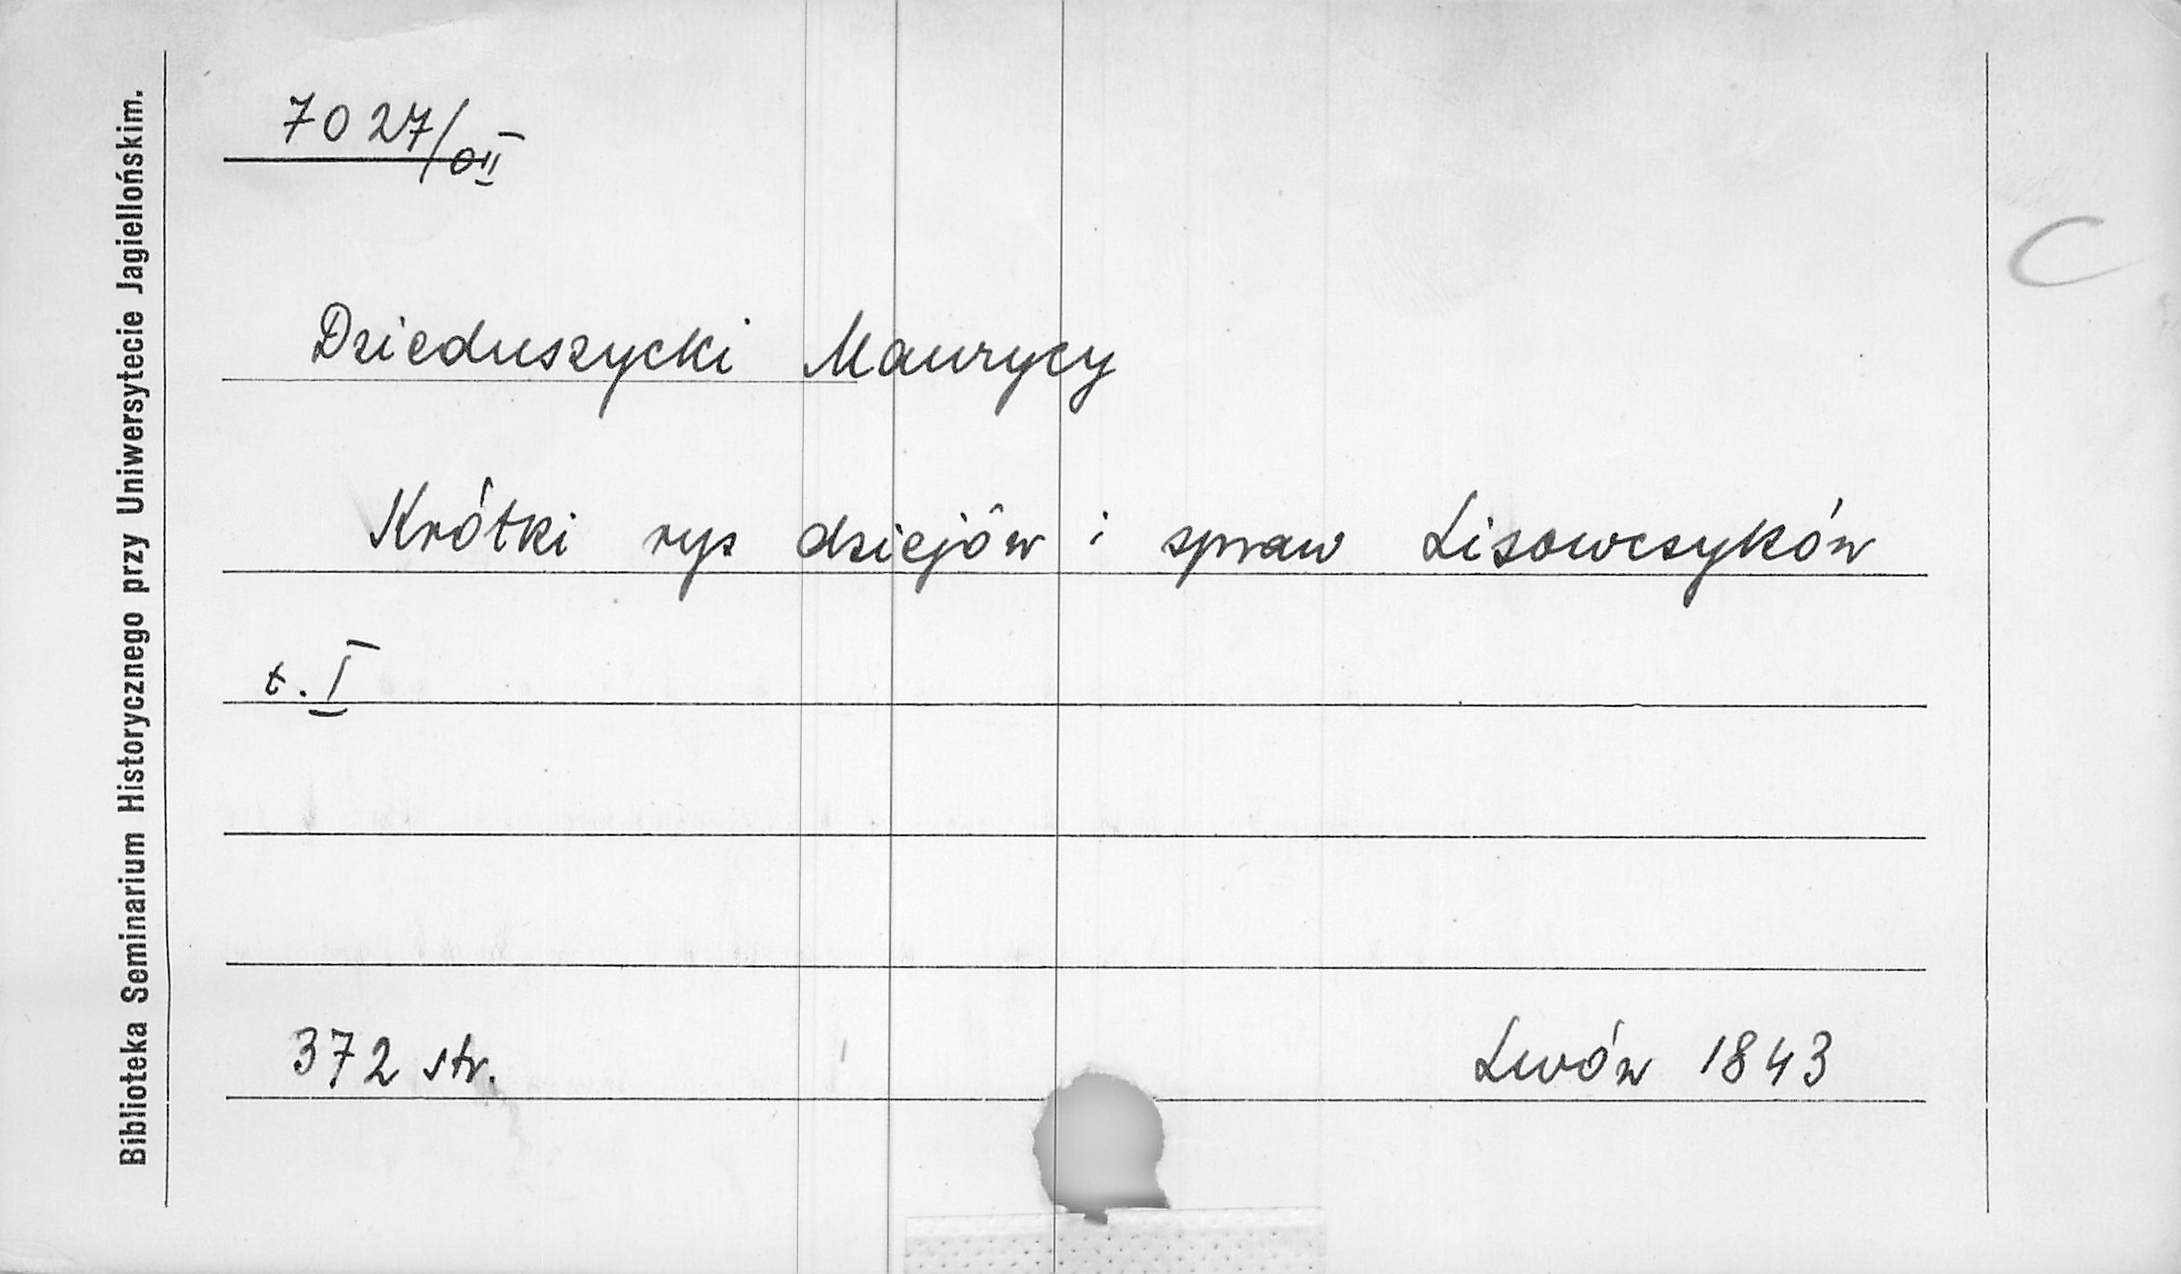 7027/0II
Dzieduszycki Maurycy
Krótki rys dziejów i spraw Lisowczyków
t. I
372 str. Lwów 1843
Biblioteka Seminarium Historycznego przy Uniwersytecie Jagiellońskim.
C